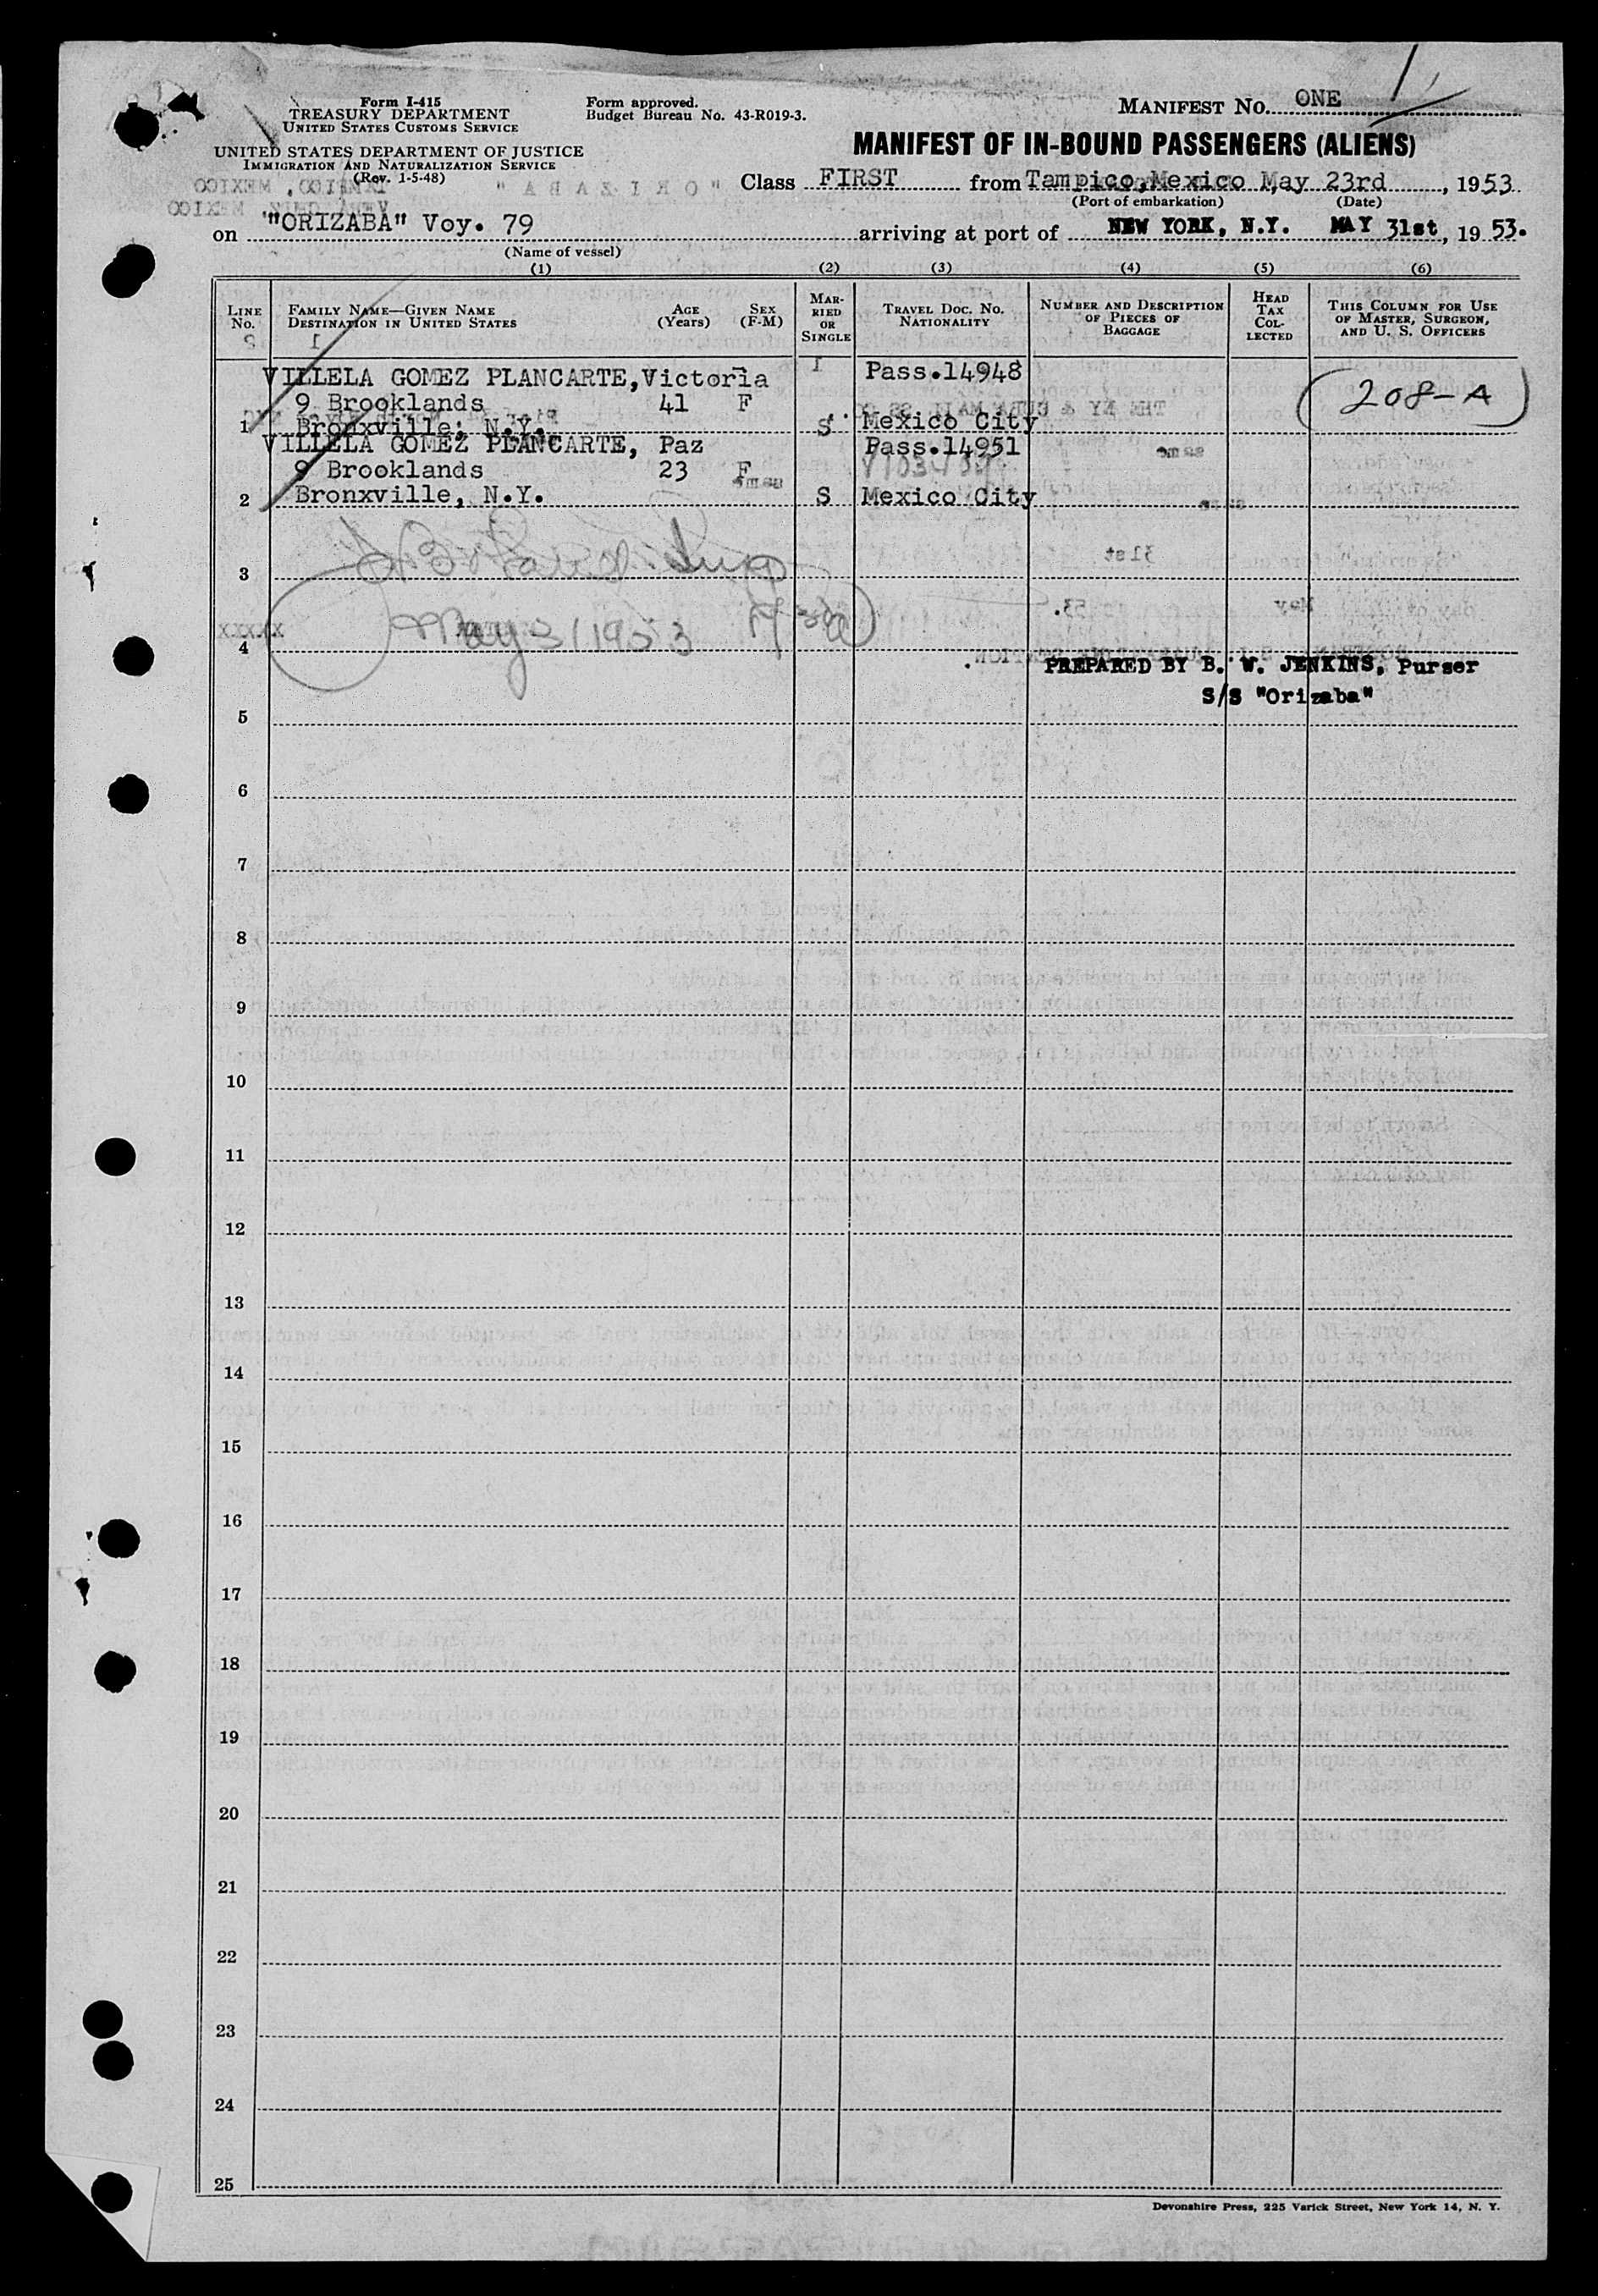 Form I-415
TREASURY DEPARTMENT
UNITED STATES CUSTOMS SERVICE
UNITED STATES DEPARTMENT OF JUSTICE
IMMIGRATION AND NATURALIZATION SERVICE
(Rev. 1-5-48)
Form approved.
Budget Bureau No. 43-R019-3.
MANIFEST No. ONE 1
MANIFEST OF IN-BOUND PASSENGERS (ALIENS)
Class FIRST from Tampico, Mexico May 23rd, 1953
(Port of embarkation) (Date)
on "ORIZABA" Voy. 79 arriving at port of NEW YORK, N.Y. MAY 31st, 1953.
(Name of vessel)
(1) (2) (3) (4) (5) (6)
LINE No.
FAMILY NAME—GIVEN NAME
DESTINATION IN UNITED STATES
AGE (Years)
SEX (F-M)
MARRIED OR SINGLE
TRAVEL DOC. No.
NATIONALITY
NUMBER AND DESCRIPTION OF PIECES OF BAGGAGE
HEAD TAX COLLECTED
THIS COLUMN FOR USE OF MASTER, SURGEON, AND U. S. OFFICERS
VILLELA GOMEZ PLANCARTE, Victoria Pass.14948
9 Brooklands 41 F 208-A
1 Bronxville, N.Y. S Mexico City
VILLELA GOMEZ PLANCARTE, Paz Pass.14951
9 Brooklands 23 F
2 Bronxville, N.Y. S Mexico City
3
May 31 1953
4
PREPARED BY B. W. JENKINS, Purser
S/S "Orizaba"
5
6
7
8
9
10
11
12
13
14
15
16
17
18
19
20
21
22
23
24
25
Devonshire Press, 225 Varick Street, New York 14, N. Y.